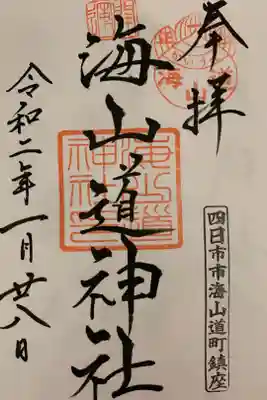 奉拝
四日市市海山道町鎮座
海山道神社
令和二年一月廿八日